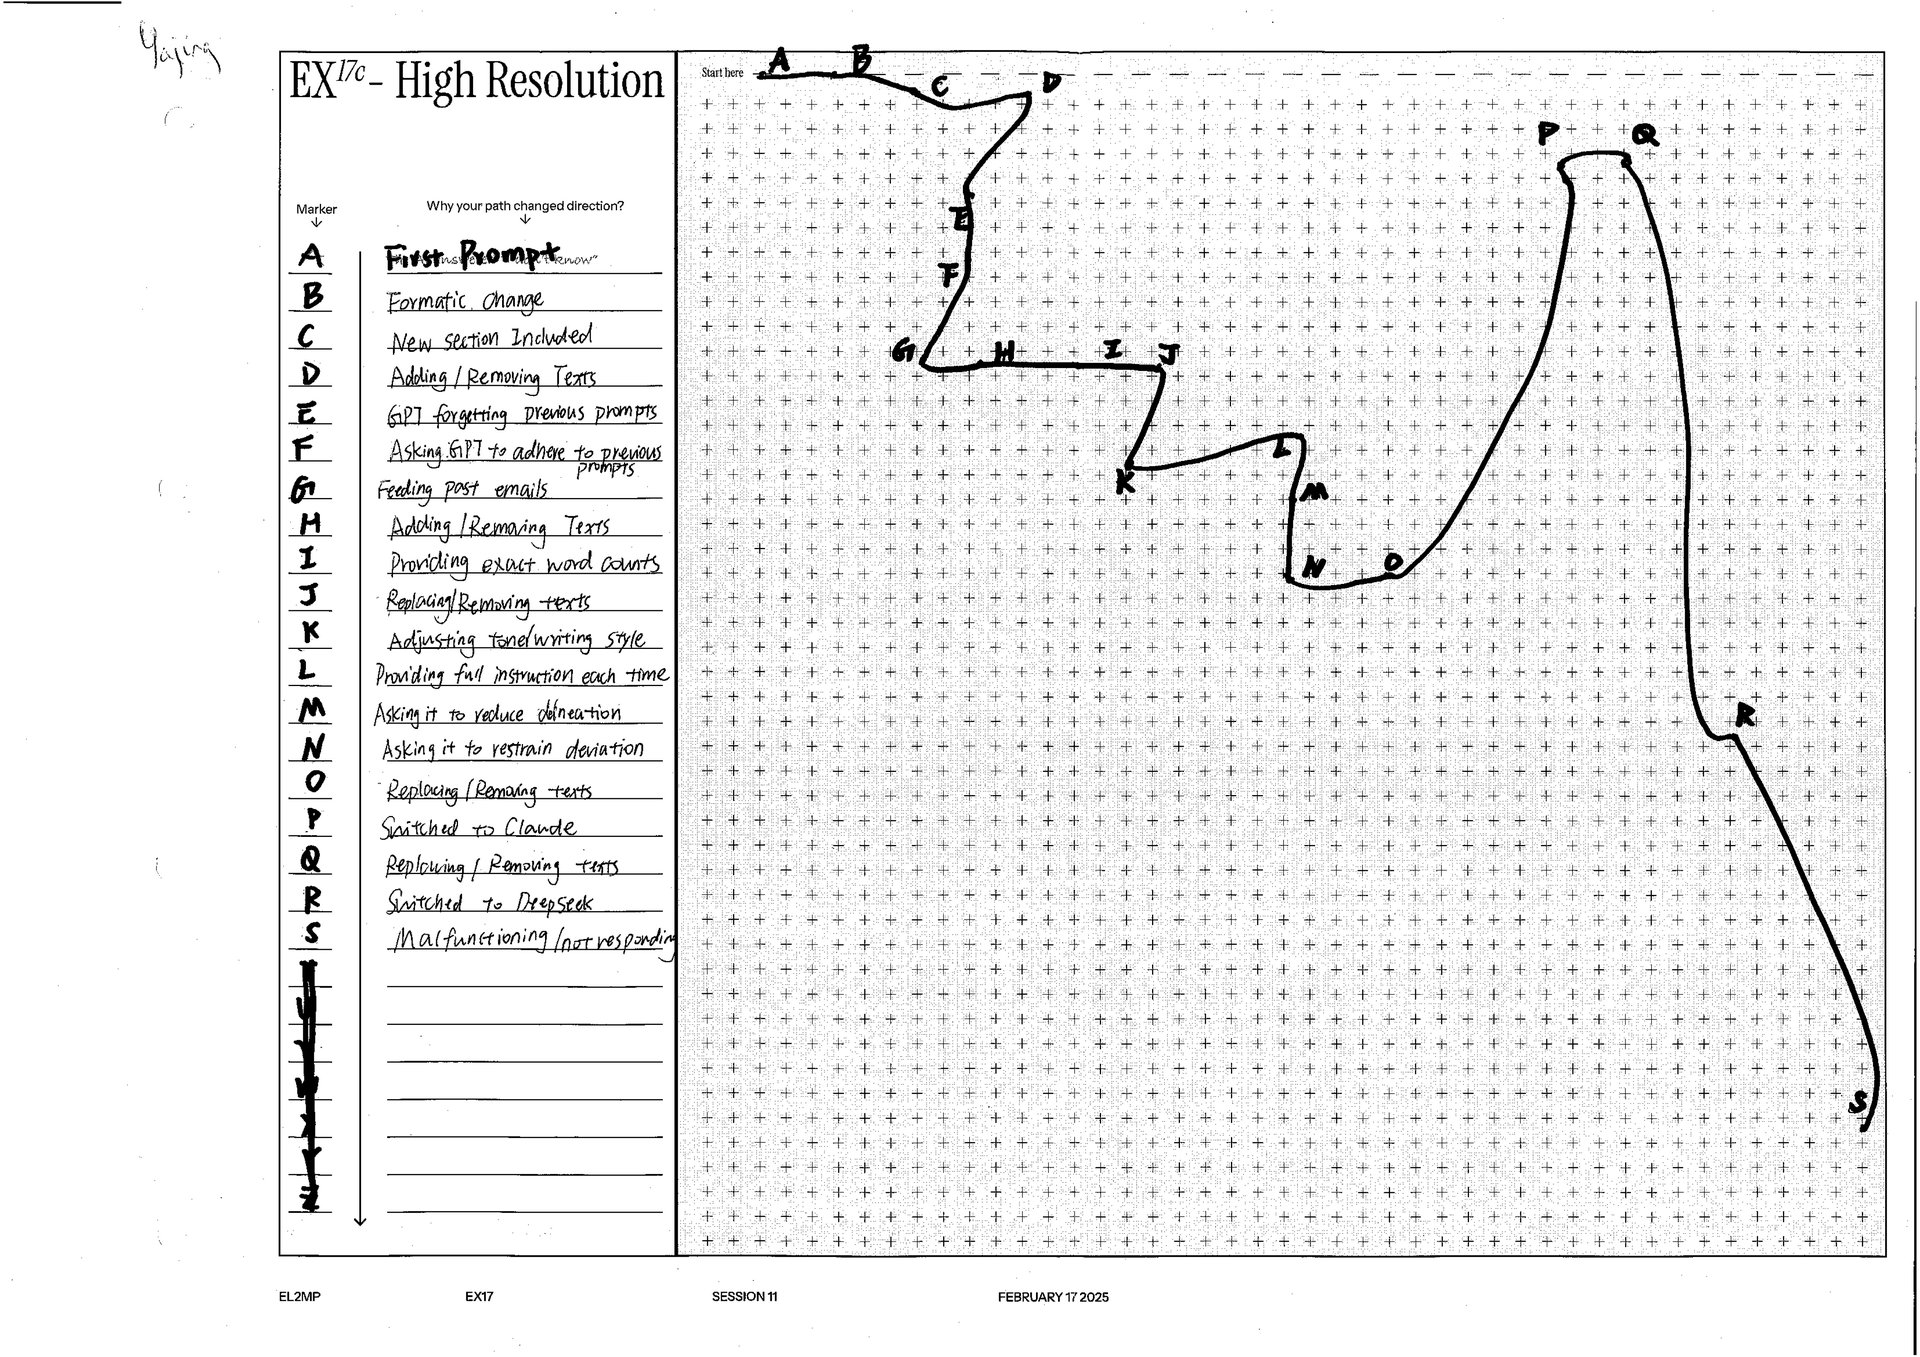 Yajing
EX17c - High Resolution
Marker
Why your path changed direction?
A First Prompt
know"
B Formatic change
C New section Included
D Adding / Removing Texts
E GPT forgetting previous prompts
F Asking GPT to adhere to previous
prompts
G Feeding past emails
H Adding / Removing Texts
I Providing exact word counts
J Replacing/Removing texts
K Adjusting tone/writing style
L Providing full instruction each time
M Asking it to reduce
N Asking it to restrain deviation
O Replacing / Removing texts
P Switched to Claude
Q Replacing / Removing texts
R Switched to DeepSeek
S Malfunctioning / not responding
Start here
A
B
C
D
E
F
G
H
I
J
K
L
M
N
O
P
Q
R
S
EL2MP
EX17
SESSION 11
FEBRUARY 17 2025